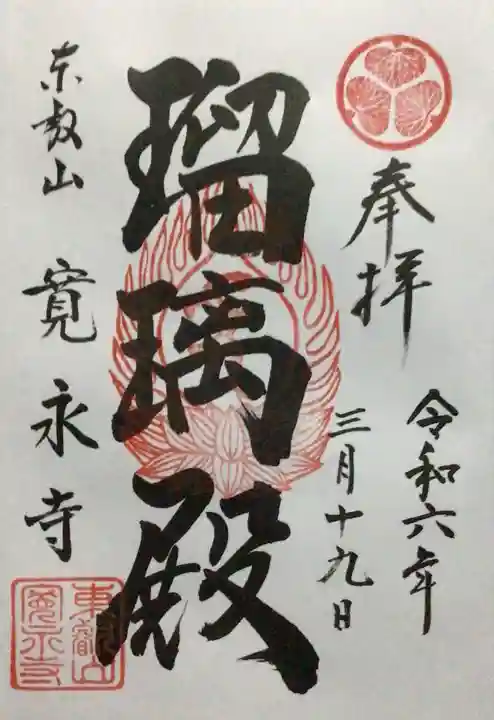 奉拝
令和六年
三月十九日
瑠璃殿
東叡山 寛永寺
東叡山
寛永寺